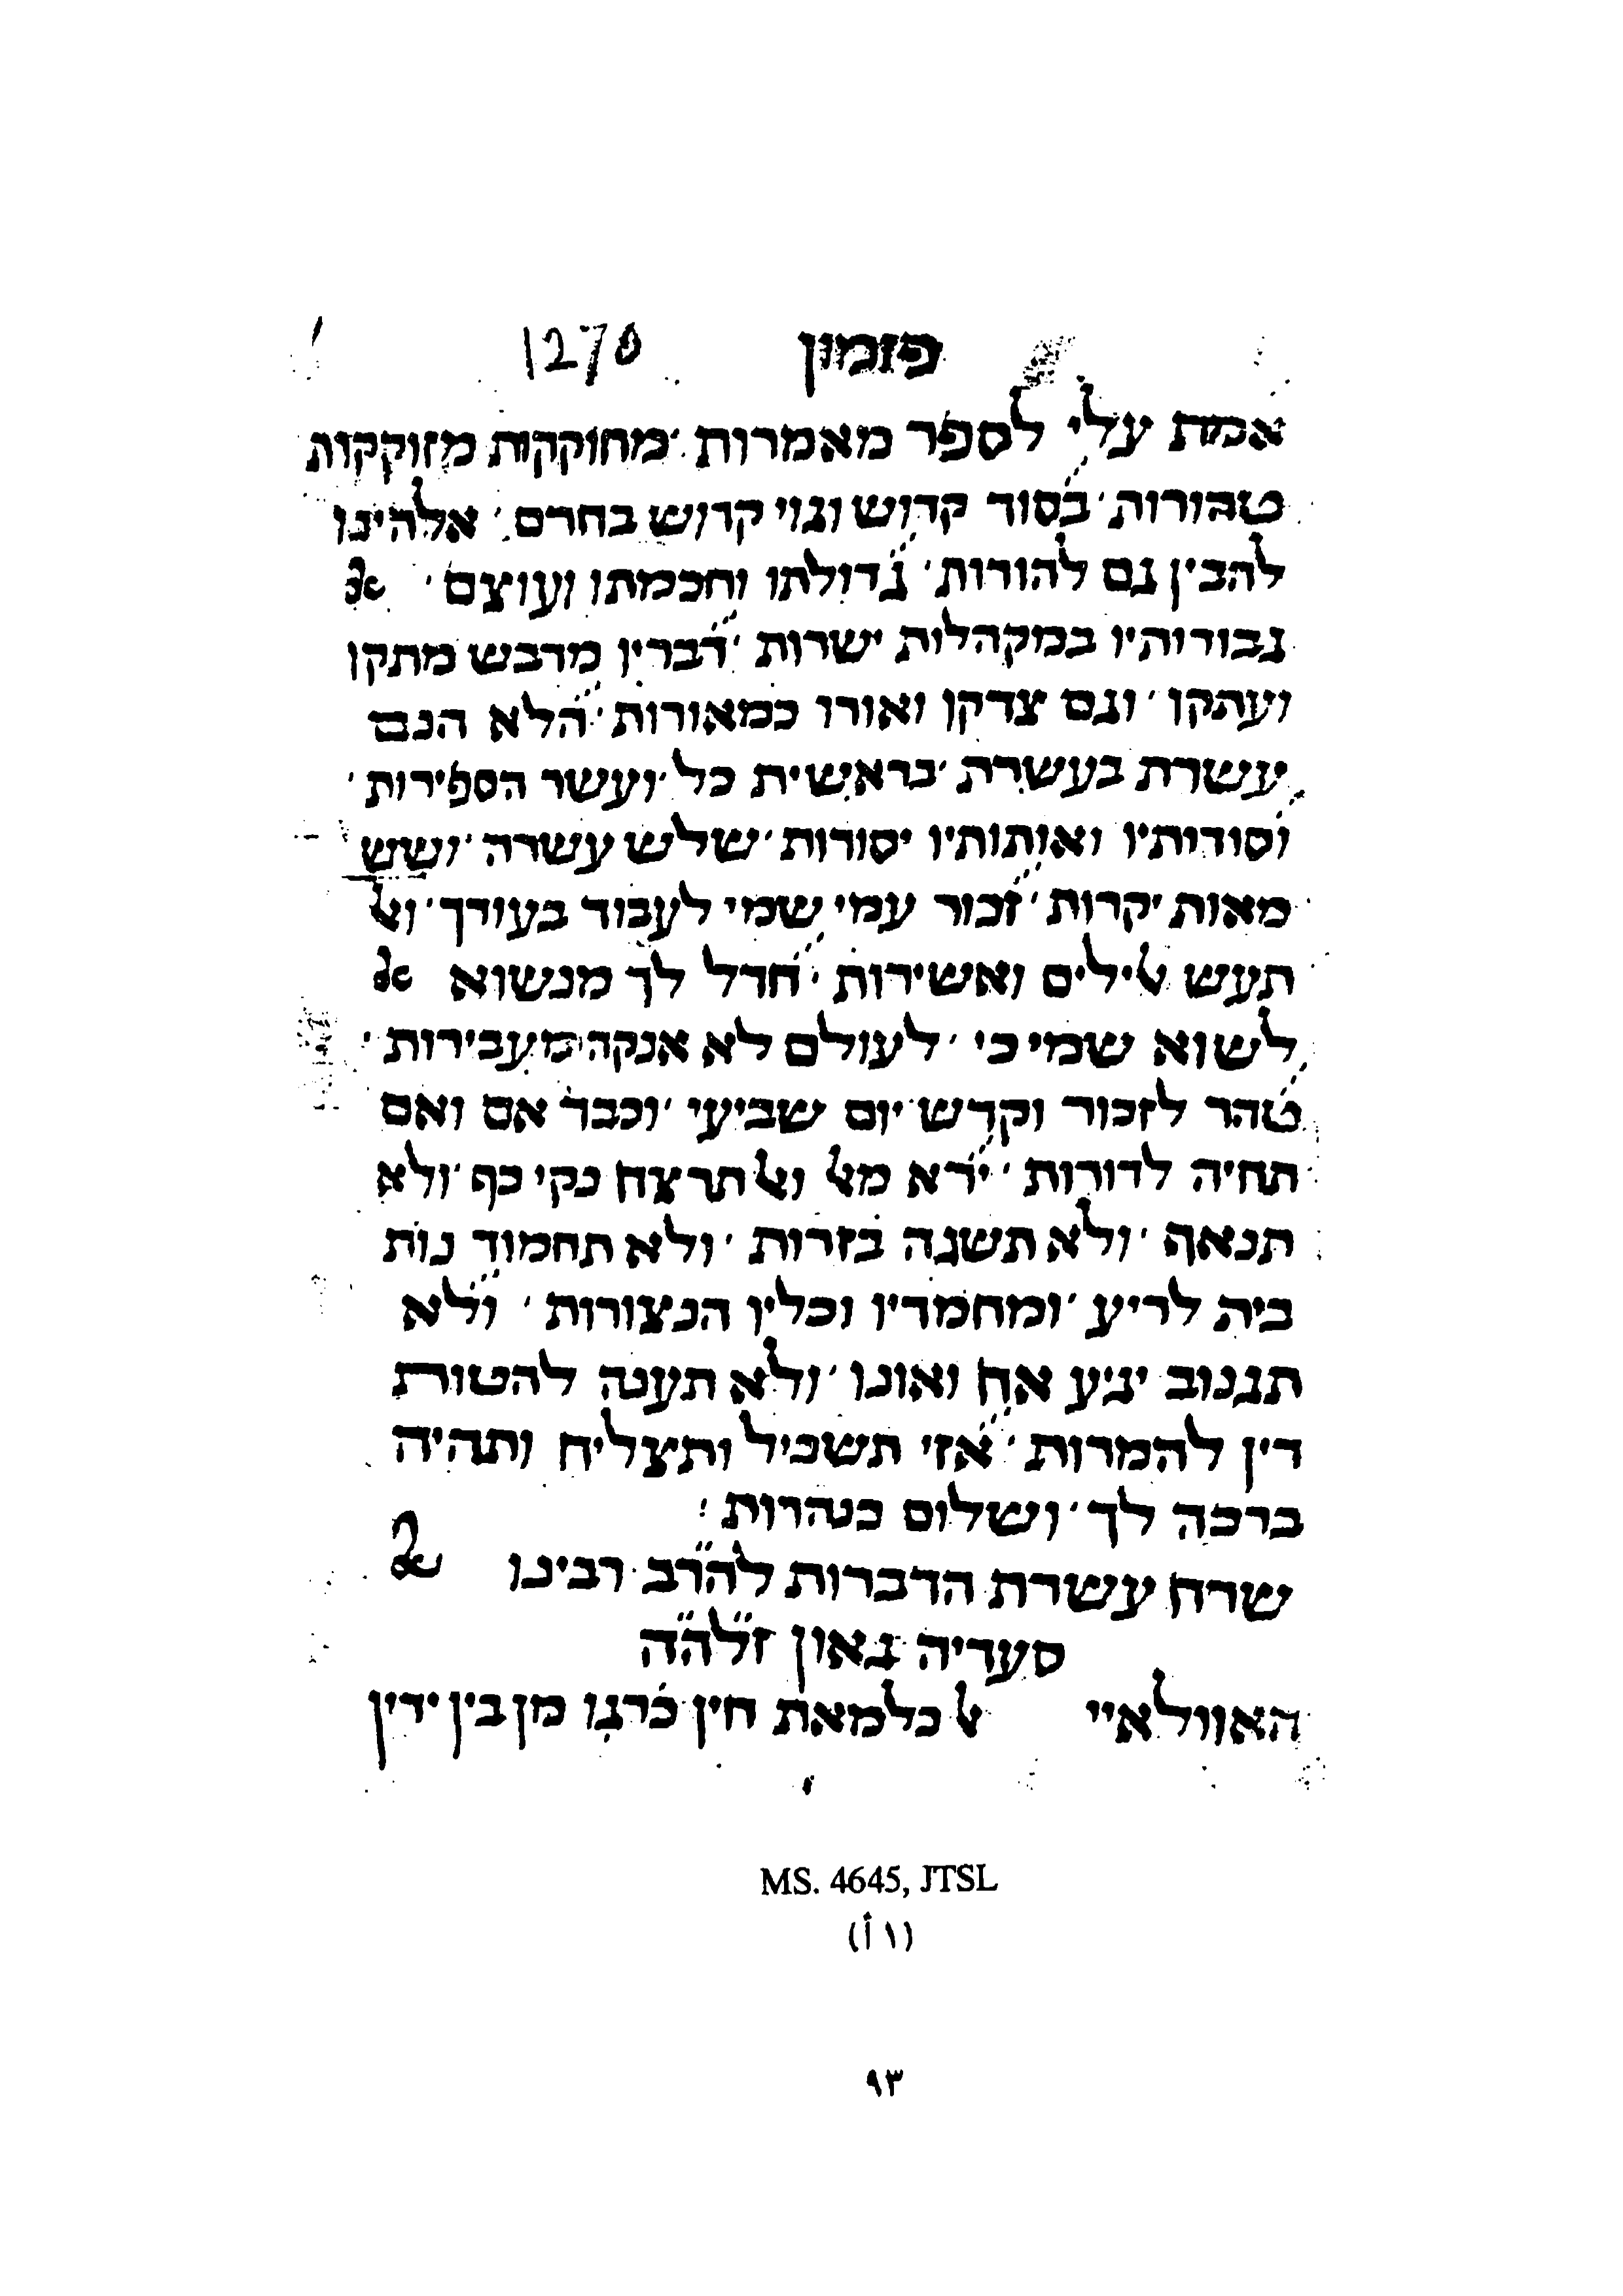 פזמון 1270
אמת עלי לספר מאמרות ׳ מחוקקות מזוקקות
טהורות ׳ בסוד קדוש וגוי קדוש בחרם ׳ אלהינו
להבין גם להורות ׳ גדולתו וחכמתו ועוצם ׳
גבורותיו במקהלות ישרות ׳ דברין מדבש מתקו
ועתקו ׳ וגם צדקו ואורו כמאורות ׳ הלא הנם
עשרת בעשרת ׳ בראשית כל ׳ ועשר הספירות ׳
וסודותיו ואותותיו יסודות ׳ שלש עשרה ׳ ושש
מאות יקרות ׳ זכור עמי שמי לעבוד בעודך ׳ ואל
תעש אלילים ואשירות ׳ חדל לך מנשוא
לשוא שמי כי ׳ לעולם לא אנקה מעבירות ׳
טהר לזכור וקדש יום שביעי ׳ וכבד אם ואם
תחיה לדורות ׳ ירא מאל ואל תרצח נקי כף ׳ ולא
תנאף ׳ ולא תשגה בזרות ׳ ולא תחמוד נות
בית לריע ׳ ומחמדיו וכליו הנצורות ׳ ולא
תגנוב יגיע אח ואונו ׳ ולא תענה להטות
דין להמרות ׳ אזי תשכיל ותצליח ותהיה
ברכה לך ׳ ושלום כנהרות :
שרח עשרת הדברות להר״ב רבינו
סעדיה גאון ז״ל״ה״ה
האוולאיי אל כלמאת חין כׄרגו מן בין ידין
MS. 4645, JTSL
(١ أ)
٩٣